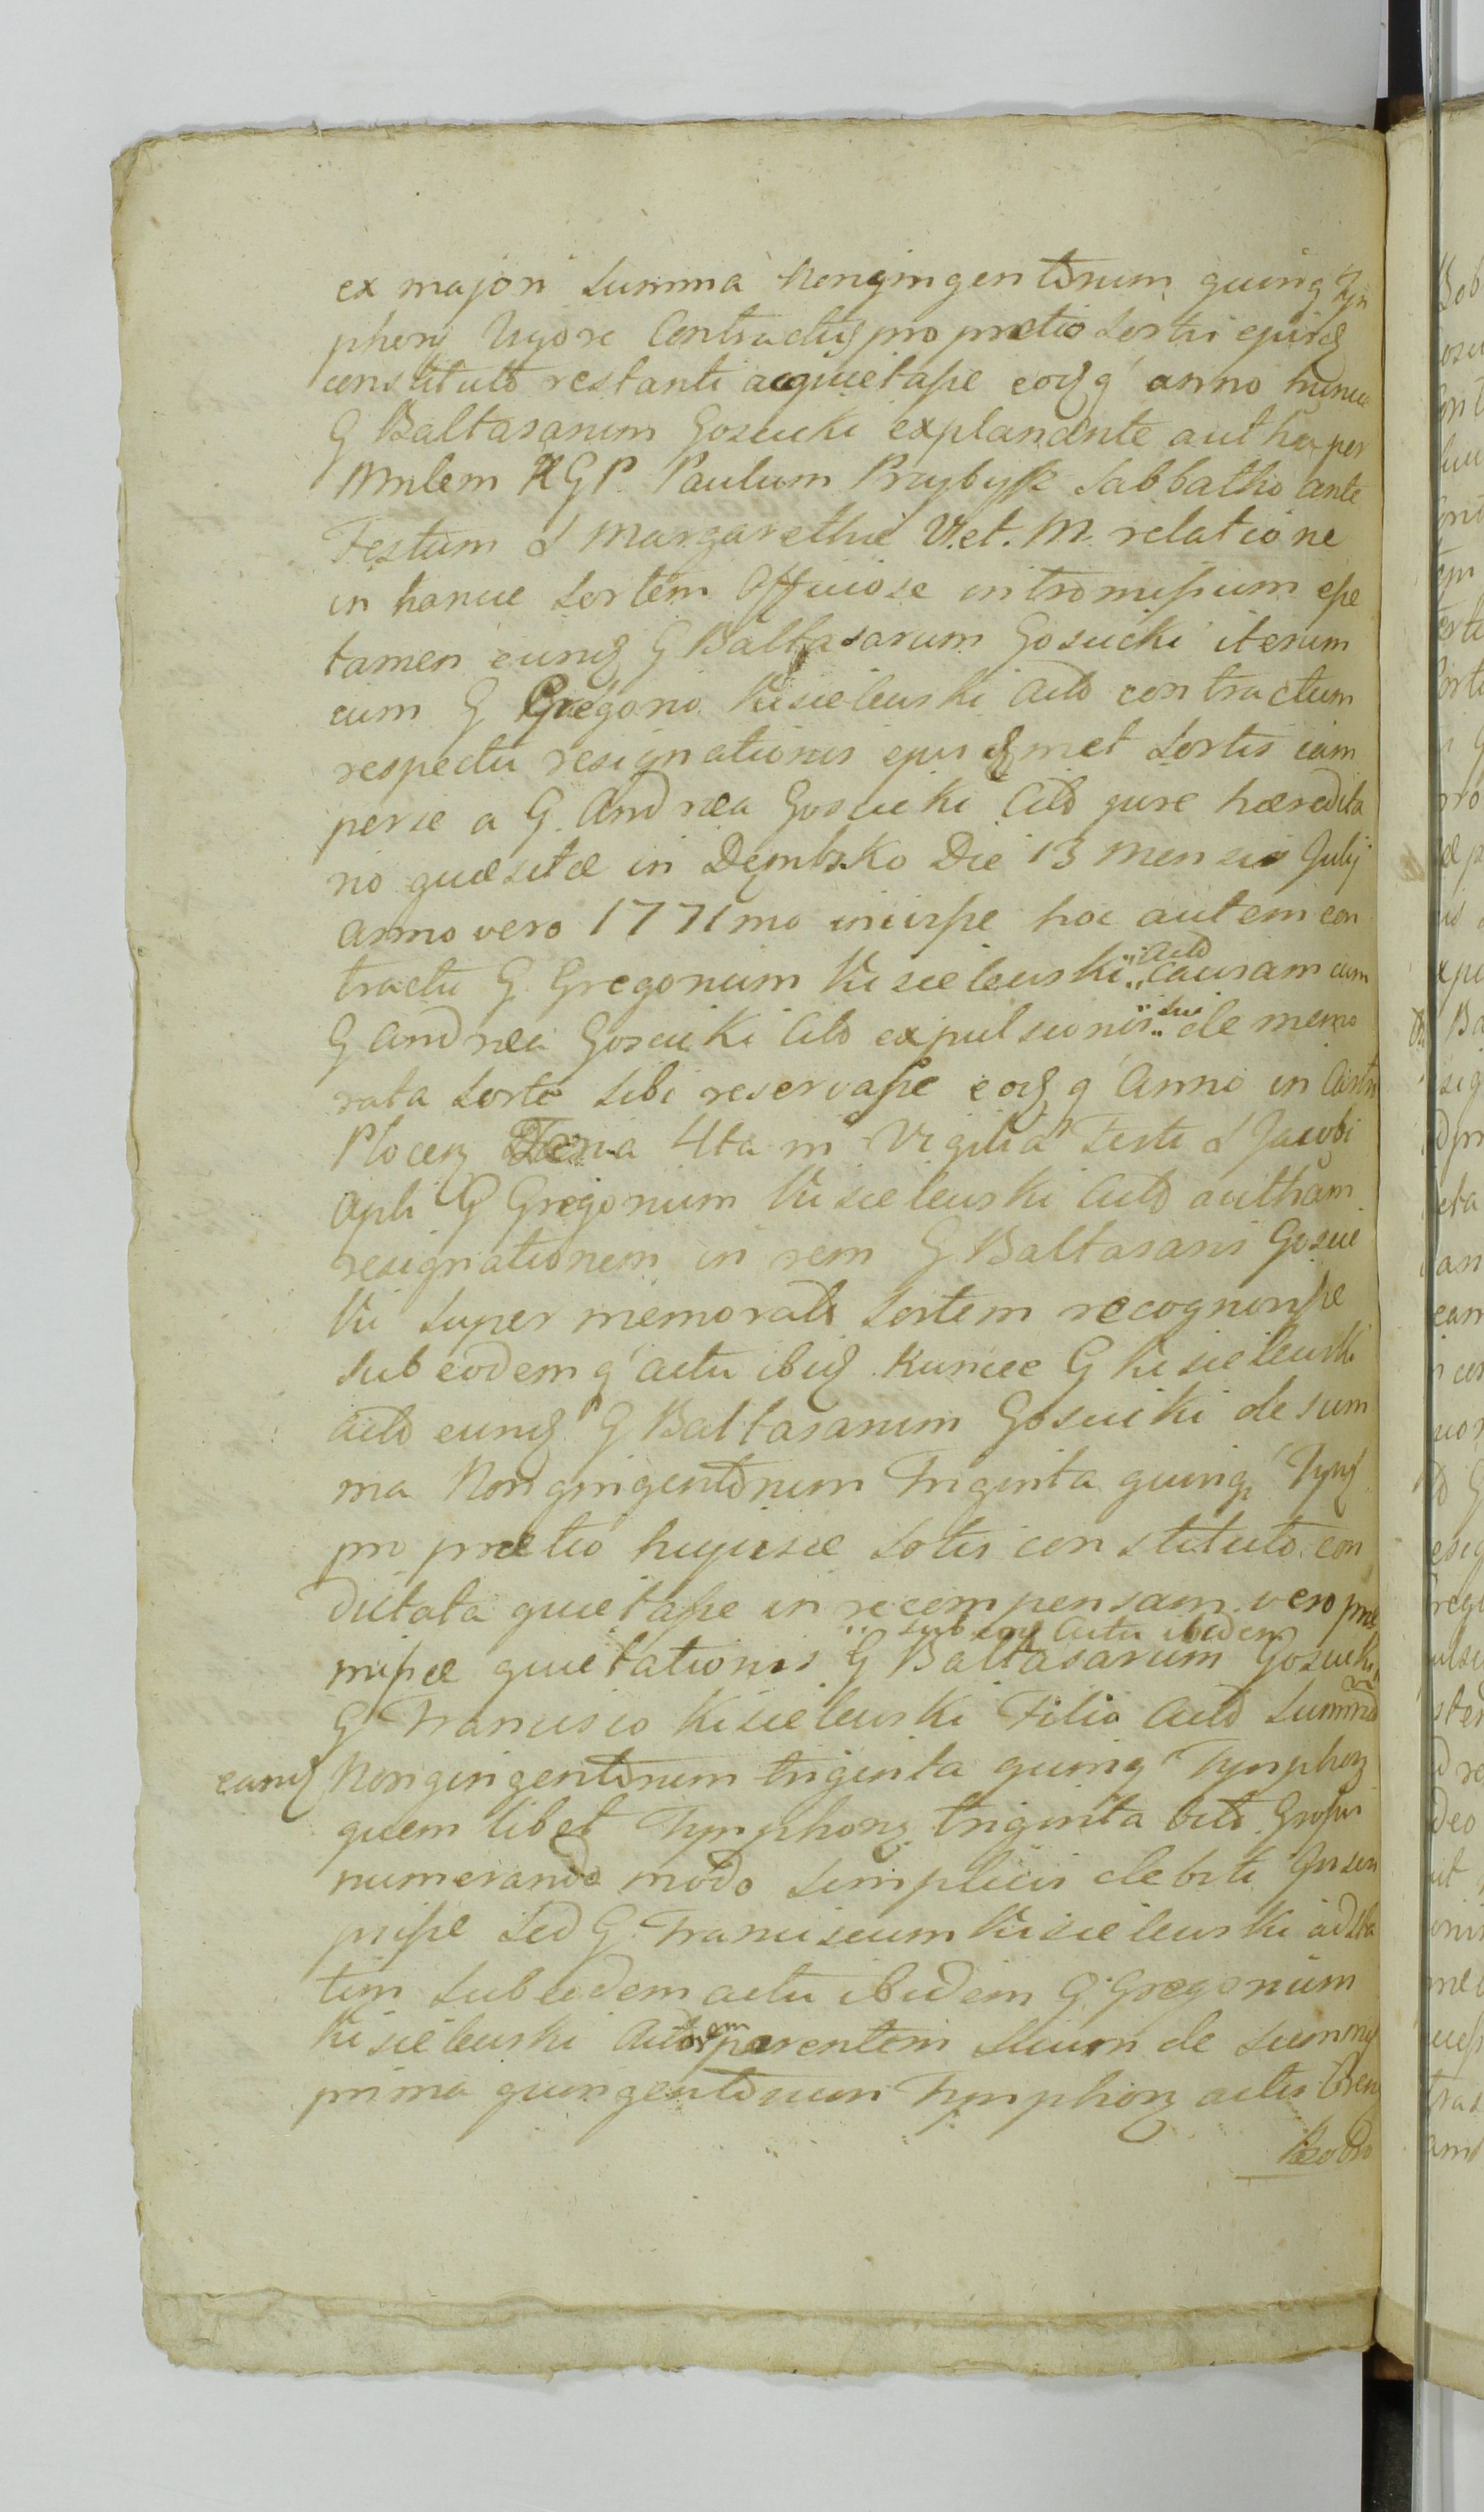 ex majori summa Nongingentorum quinq Tyn
phorz vigore Contractus pro pretio sortis ejusd
constituto restanti acquietasse eodq anno hunce
G Baltasarum Gosucki explanante auth per
Mnlem RGP. Paulum Przybysz Sabbatho ante
Festum S Margarethæ V. et. M. relatione
in hance sortem Officiose intromissum esse
tamen eund G Baltasarum Gosucki iterum
cum G Gregorio Kisielewski Acto contractum
respectu resignationis ejusdmet sortis iam
per se a G. Andrea Gosucki Acto jure hæredita
rio quæsitæ in Dęmbsko Die 13 mensis Julij
anno vero 1771mo iniisse hoc autem con
tractu G Gregorium Kisielewski Acto causam cum
G Andrea Gosucki Acto expulsionis sui de memo
rata sorte sibi reservasse eodq Anno in Castro
Plocen Feria 4ta in Vigilia Festi S Jacobi
Apli G Gregorium Kisielewski Acto autham
resignationem in rem G Baltasaris Gosuc
ki super memorata sortem recognovisse
sub eodemq actu ibid hunce G Kisielewski
acto eund G Baltasarum Gosucki de sum
ma Nongingentorum Triginta quinq Tynf
pro pretio hujusce sotis constituto con
dictata quietasse in recompensam vero præ
missæ quietationis sub eod actu ibidem G Baltasarum Gosucki
G Francisco Kisielewski Filio Acto Summa
eand Nongingentorum triginta quinq Tynphorz
quem libet Tynphonz triginta octo Grossis
numerando modo simplicis debiti Inscri
psisse sed G. Franciscum Kisielewski adsta
tim sub eodem actu ibidem G. Gregorium
Kisielewski Actorem parentem suum de summa
prima quingentorum Tynphorz actis Bren
Kobo